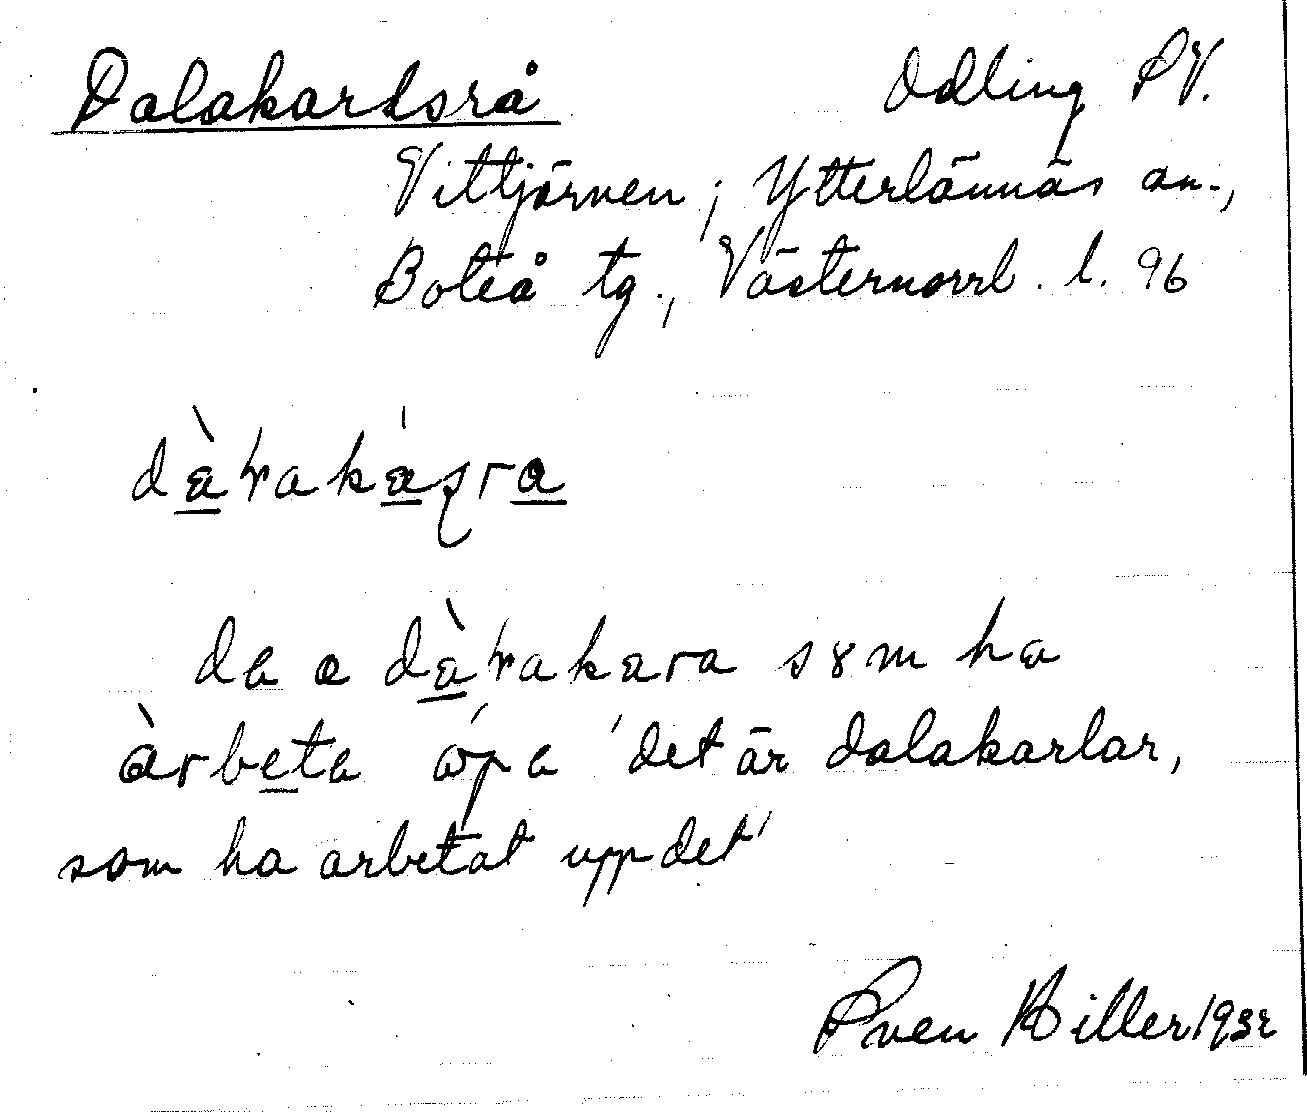 Dalakarlsrå Odling SV.
Vittjärnen, Ytterlännäs sn.,
Boteå tg., Västernorrl. l. 96
dàłakásra
da a dàłakara sɤm ha
àrbeta ópa 'det är dalakarlar,
som ha arbetat upp det'
Sven Hiller 1932